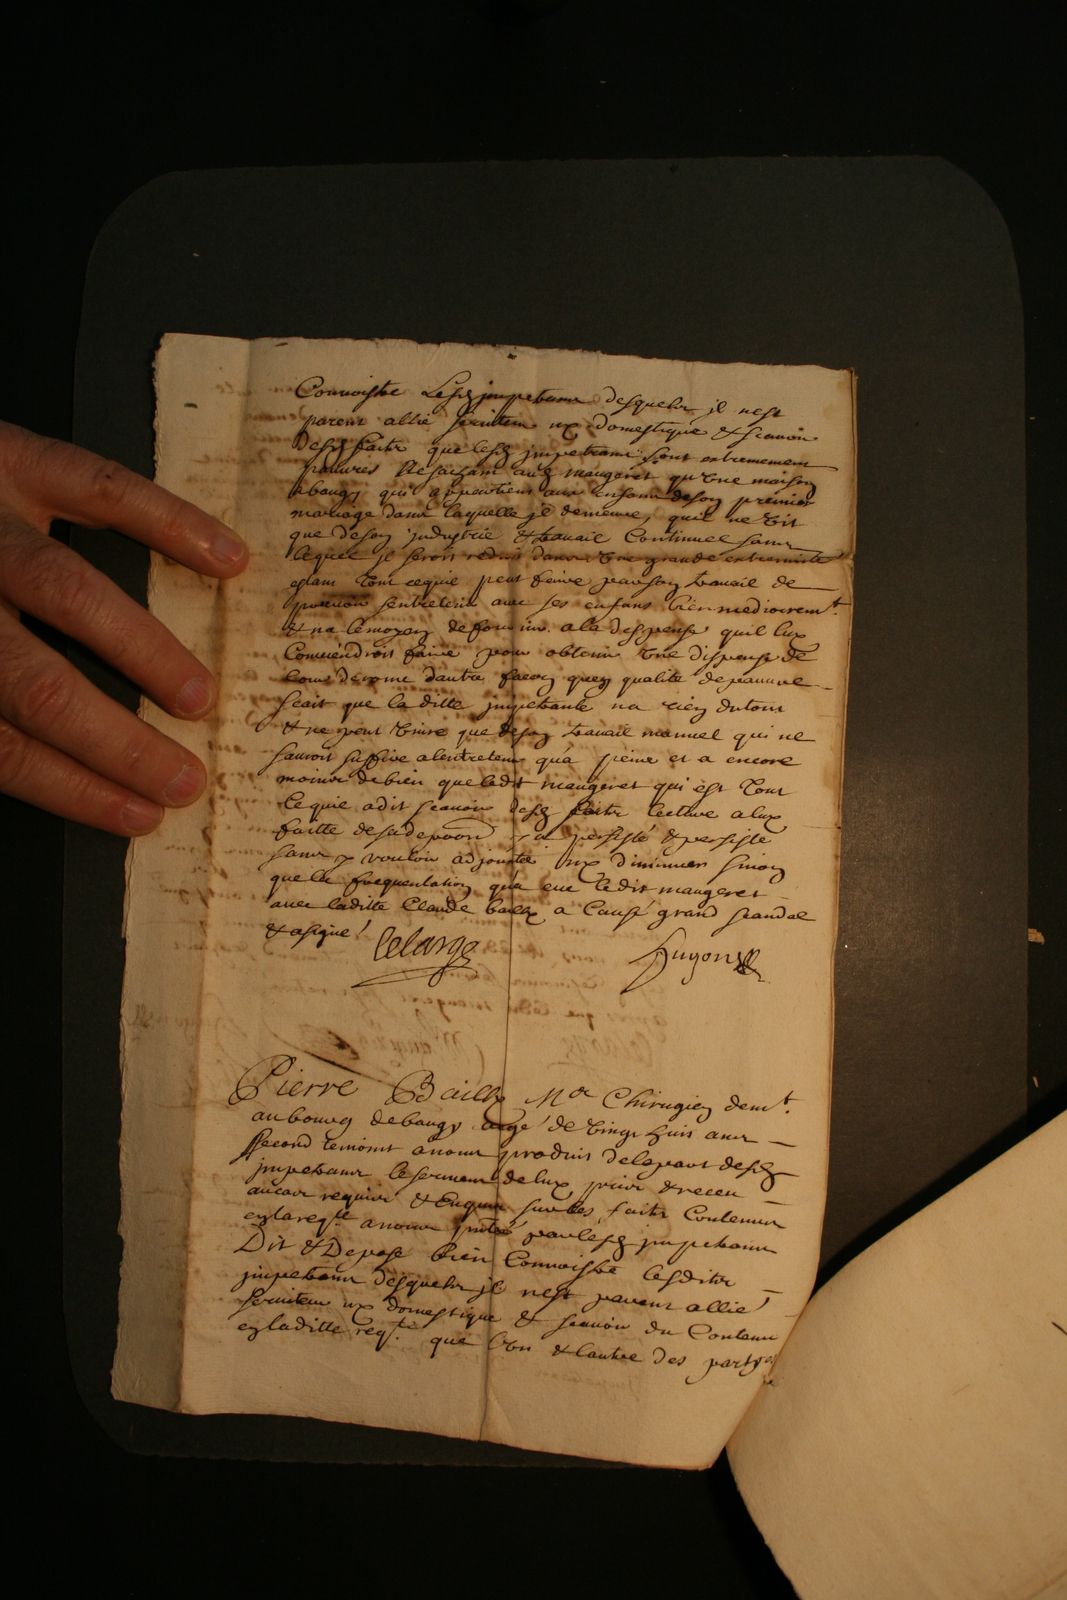 Connoistre Lesd impetrans desquels il nest
parent allié serviteur ny domestique & scavoir
Desd faits que lesd impetrans sont extremement
pauvres Ne sachant aud maugeret qu'une maison
a baugy qui appartient aux enfans de son premier
mariage dans laquelle jl demeure, quil ne vit
que de son jndustrie & travail Continuel sans
lequel jl seroit reduit dans une grande extremité
estant tout ce quil peut faire par son travail de
pouvoir sentretenir avec ses enfans bien mediocremt.
& na le moyen de fournir a la despense quil luy
Conviendroit faire pour obtenir une dispense de
cour de rome dautre facon quen qualité de pauvre
scait que la ditte jmpetrante na rien du tout
& ne peut vivre que de son travail manuel qui ne
sauroit suffire a lentretenir qua peine et a encore
moins de bien que ledit maugeret qui est tout
ce quil a dit scavoir desd faits lecture a luy
faitte de sa depoon y a persisté & persiste
sans y vouloir adjouster ny diminuer sinon
que la frequentation qua eue ledit maugeret
avec laditte Claude bailly a Causé grand scandal
& a signé
Lelarge Hugon
Pierre Bailly Me Chirugien demt.
au bourg de baugy aagé de vingt huit ans
second temoint a nous produit de la part desd
jmpetrans le serment de luy pris & receu
au cas requis & Enquis sur les faits Contenus
en la reqte. a nous presentée par lesd jmpetrans
Dit & Depose bien Connoistre lesdits
jmpetrans desquels jl nest parent allié
serviteur ny domestique & scavoir du Contenu
en laditte reqte. que lun & lautre des partyes